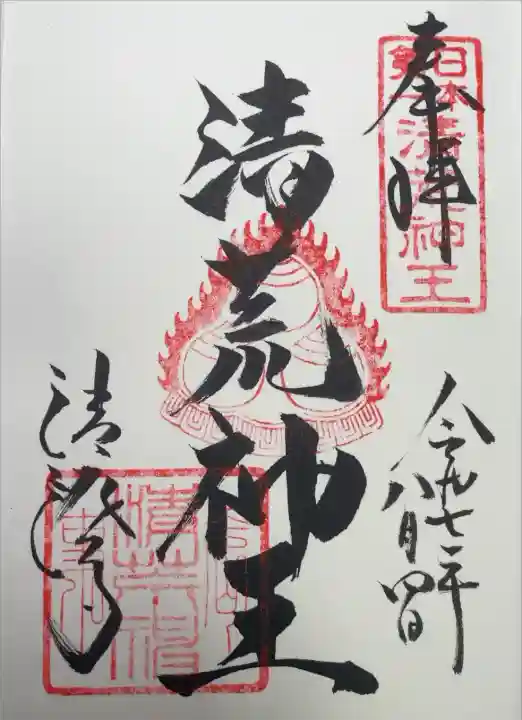 日本第一清荒神王
奉拝
令和七年
八月四日
清荒神王
清澄寺